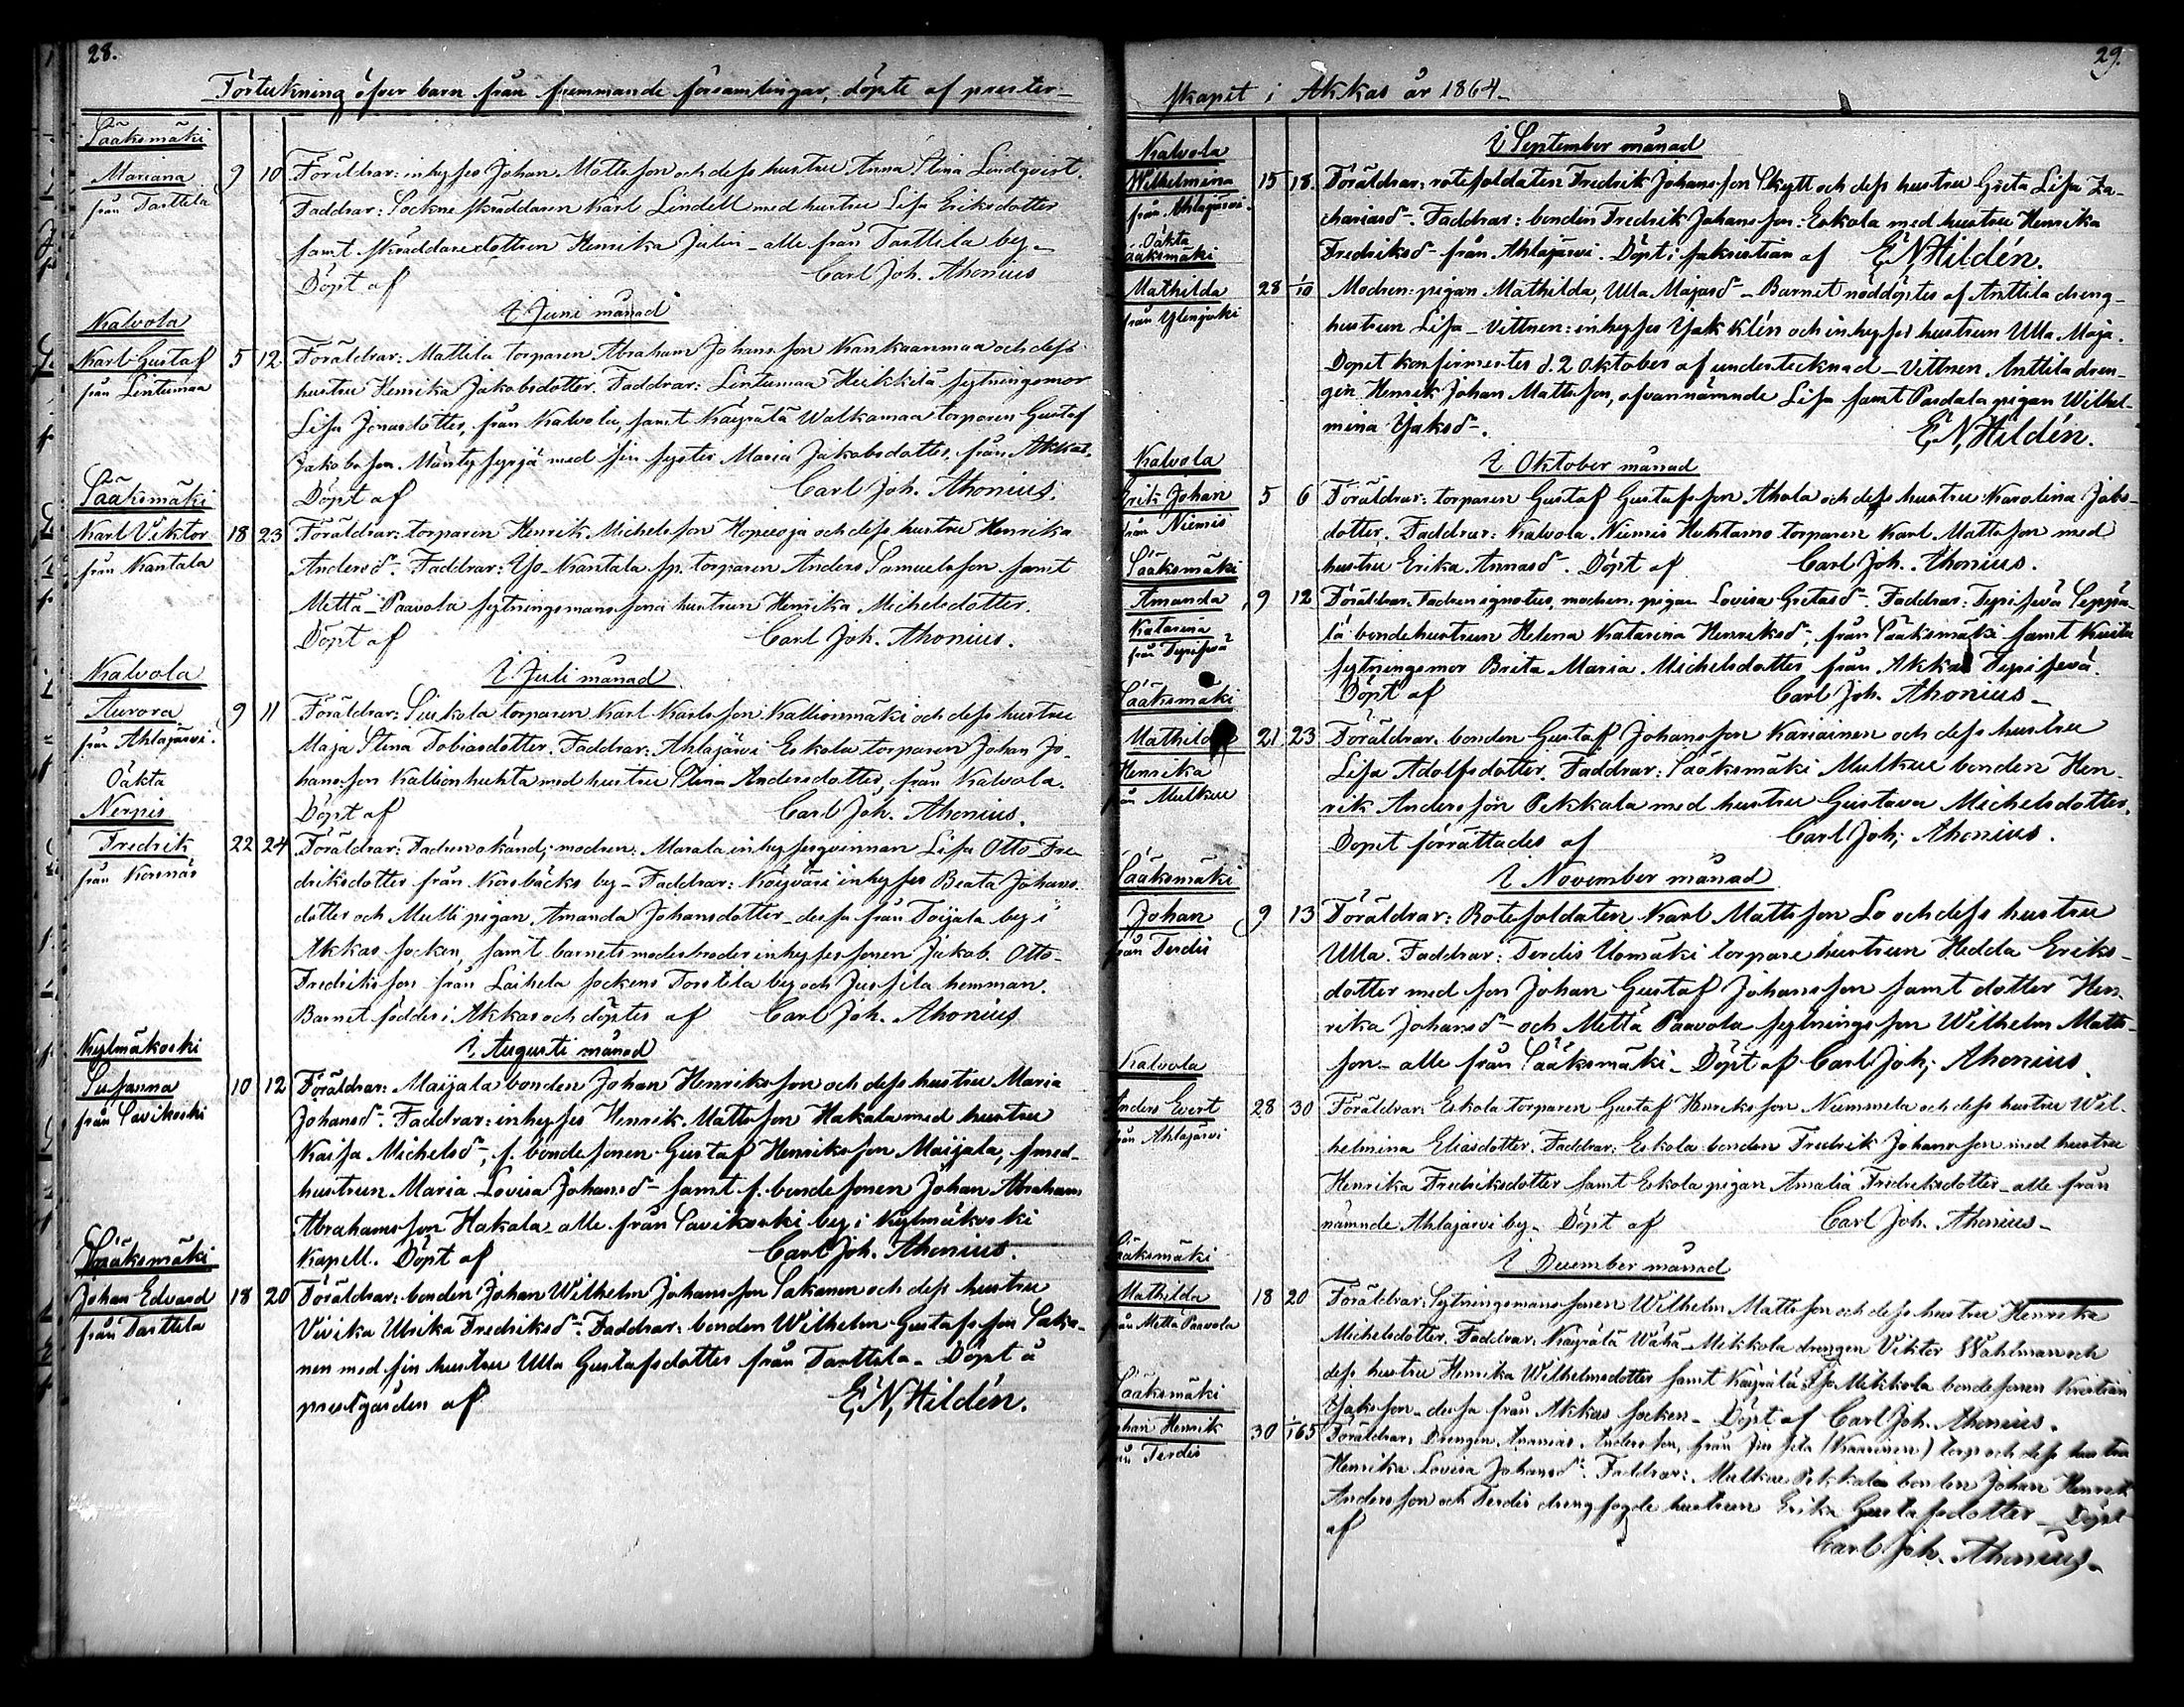 28.
Förteckning öfver barn från främmande församlingar, döpte af prester-
Sääksmäki
Mariana 9 10 Föräldrar: inhyses Johan Mattsson och dess hustru Anna Stina Lindqvist.
från Tarttila Faddrar: Sockne skräddaren Karl Lindell med hustru Lisa Eriksdotter
samt skräddaredottren Henrika Julin - alle från Tarttila by -
Döpt af Carl Joh. Ahonius
I Juni månad
Kalvola
Karl Gustaf 5 12. Föräldrar: Mattila torparen Abraham Johansson Kankaanmaa och dess
från Lintumaa hustru Henrika Jakobsdotter. Faddrar: Lintumaa Heikkilä sytningsmor
Lisa Jonasdotter, från Kalvola, samt Käyrälä Walkamaa torparen Gustaf
Jakobsson Mäntysyrjä med sin syster Maria Jakobsdotter, från Akkas.
Döpt af Carl Joh. Ahonius.
Sääksmäki
Karl Viktor 18 23 Föräldrar: torparen Henrik Michelsson Hopeeoja och dess hustru Henrika
från Kantala Andersd-. Faddrar: Yo-Kantala sp. torparen Anders Samuelsson samt
Metta-Paavola sytningsmanssons hustrun Henrika Michelsdotter.
Döpt af Carl Joh. Ahonius.
I Juli månad
Kalvola
Aurora 9 11 Föräldrar: Siukola torparen Karl Karlsson Kallionmäki och dess hustru
från Ahlajärvi. Maja Stina Tobiasdotter. Faddrar: Ahlajärvi Eskola torparen Johan Jo-
hansson Kallionhuhta med hustru Stina Andersdotter, från Kalvola.
Döpt af Carl Joh. Ahonius.
Oäkta
Nerpis
Fredrik 22 24 Föräldrar: Fadren okänd; modren Marala inhysesqvinnan Lisa Otto Fre-
från Korsnäs driksdotter från Korsbäcks by - Faddrar: inhyses Beata Johans-
dotter och Multi pigan Amanda Johansdotter - dessa från Toijala by i
Akkas socken, samt barnets moderbroder inhysessonen Jakob Otto-
Fredriksson från Laihela sockens Torstila by och Jussila hemman.
Barnet föddes i Akkas och döptes af Carl Joh. Ahonius
I Augusti månad
Kylmäkoski
Susanna 10 12 Föräldrar: Maijala bonden Johan Henriksson och dess hustru Maria
från Savikoski Johansd-. Faddrar: inhyses Henrik Mattsson Hakala med hustru
Kaisa Michelsd-, f. bondesonen Gustaf Henriksson Maijala, smed-
hustrun Maria Lovisa Johansd- samt f. bondesonen Johan Abraham
Abrahamsson Hakala - alle från Savikoski by i Kylmäkoski
Kapell. Döpt af Carl Joh. Ahonius.
Sääksmäki
Johan Edvard 18 20 Föräldrar: bonden Johan Wilhelm Johansson Sakanen och dess hustru
från Tarttila Vivika Ulrika Fredriksd-. Faddrar: bonden Wilhelm Gustafsson Saka-
nen med sin hustru Ulla Gustafsdotter från Tarttila - Döpt å
prestgården af E. N. Hildén.
29.
skapet i Akkas år 1864.
I September månad
Kalvola
Wilhelmina 15 18. Föräldrar: rotesoldaten Fredrik Johansson Skytt och dess hustru Greta Lisa Za-
från Ahlajärvi. chariasd-. Faddrar: bonden Fredrik Johansson Eskola med hustru Henrika
Fredriksd- från Ahlajärvi. Döpt i sakristian af E. N. Hildén.
Oäkta
Sääksmäki
Mathilda 28 1/10 Modren: pigan Mathilda, Ulla Majasd- - Barnet nöddöptes af Anttila dreng-
från Ylenjoki hustrun Lisa - Vittnen: inhyses Isak Klén och inhyses hustrun Ulla Maja.
Dopet konfirmertes d. 2 Oktober af undertecknad - Vittnen Anttila dren-
gen Henrik Johan Mattsson, ofvannämnde Lisa samt Pardala pigan Wilhel-
mina Isaksd-. E. N. Hildén.
I Oktober månad
Kalvola
Erik Johan 5 6 Föräldrar: torparen Gustaf Gustafsson Ahola och dess hustru Karolina Jobs-
från Niemis dotter. Faddrar: Kalvola Niemis Huhtamo torparen Karl Mattsson med
hustru Erika Annasd-. Döpt af Carl Joh. Ahonius.
Sääksmäki
Amanda 9 12 Föräldrar: Fadren ignotus, modren pigan Lovisa Gretasd-. Faddrar: Terisevä Seppä-
Katarina lä bondehustrun Helena Katarina Henriksd-, från Sääksmäki samt
från sytningsmor Brita Maria Michelsdotter från Akkas
Döpt af Carl Joh. Ahonius -
Sääksmäki
Mathilda 21 23 Föräldrar: bonden Gustaf Johansson Kariainen och dess hustru
Henrika Lisa Adolfsdotter. Faddrar: Sääksmäki Mulkue bonden Hen-
från Mulkue rik Andersson Pekkala med hustru Gustava Michelsdotter.
Dopet förrättades af Carl Joh. Ahonius.
I November månad
Sääksmäki
Johan 9 13 Föräldrar: Rotesoldaten Karl Mattsson Lo och dess hustru
från Terdis Ulla. Faddrar: Terdis Uomäki torpare hustrun Hedda Eriks-
dotter med son Johan Gustaf Johansson samt dotter Hen-
rika Johansd- och Metta Paavola sytningsson Wilhelm Matts-
son - alle från Sääksmäki - Döpt af Carl Joh. Ahonius
Kalvola
Anders Evert 28 30 Föräldrar: Eskola torparen Gustaf Henriksson Niemmela och dess hustru Wil-
från Ahlajärvi helmina Eliasdotter. Faddrar: Eskola bonden Fredrik Johansson med hustru
Henrika Fredriksdotter samt Eskola pigan Amalia Fredriksdotter - alle från
nämnde Ahlajärvi by. Döpt af Carl Joh. Ahonius -
I December månad
Sääksmäki
Mathilda 18 20 Föräldrar: Sytningsmanssonen Wilhelm Mattsson och dess hustru Henrika
från Metta Paavola Michelsdotter. Faddrar: Käyrälä Wähä-Mikkola drengen Viktor Wahlman och
dess hustru Henrika Wilhelmsdotter samt Käyrälä Iso Mikkola bondesonen Kristian
Isaksson - dessa från Akkas socken - Döpt af Carl Joh. Ahonius.
Sääksmäki
Johan Henrik 30 1/1 65 Föräldrar: Drengen Ananias Andersson, från Jussila (Kaarinen) torp och dess hustru
från Terdis Henrika Lovisa Johansd-. Faddrar: Mulkue Pekkala bonden Johan Henrik
Andersson och Terdis drengfogde hustrun Erika Gustafsdotter - Döpt
af Carl Joh. Ahonius -